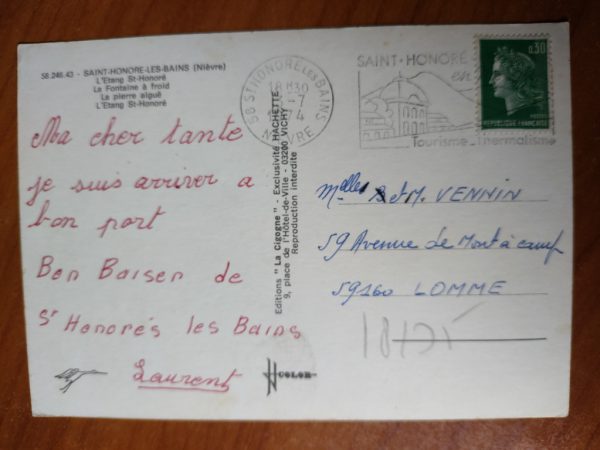 58.246.43 - SAINT-HONORE-LES-BAINS (Nièvre)
L'Etang St-Honoré
La Fontaine à froid
La pierre aiguë
L'Etang St-Honoré
Ma cher tante
je suis arriver a
bon port
Bon Baiser de
St Honorés les Bains
Laurent
Editions "La Cigogne" - Exclusivité HACHETTE
9, place de l'Hôtel-de-Ville - 03200 VICHY
Reproduction interdite
COLOR
58 ST HONORE LES BAINS
18H30
-7
NIEVRE
SAINT-HONORÉ
en
Tourisme - Thermalisme
0,30
REPUBLIQUE FRANCAISE
Melles et M. VENNIN
59 Avenue de Mont à camp
59160 LOMME